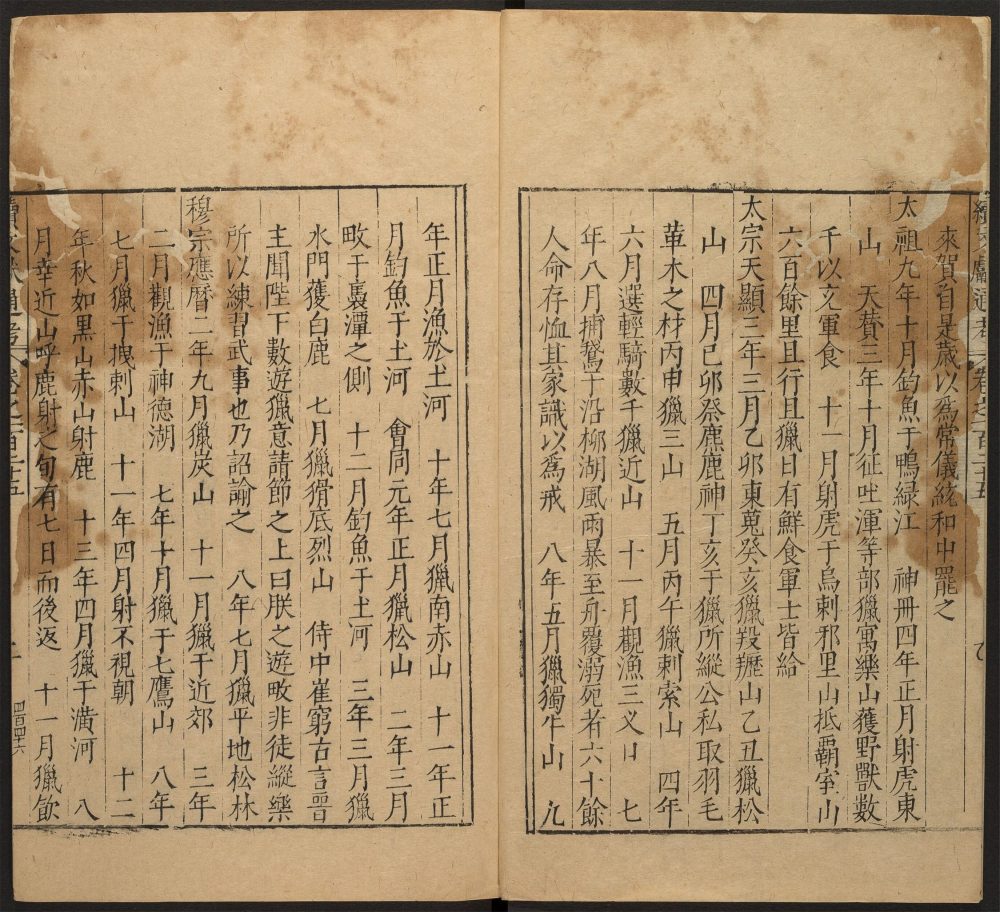 續文獻通考 卷之一百二十五
來賀自是歲以爲常儀統和中罷之
太祖九年十月釣魚于鴨綠江　神冊四年正月射虎東
山　天贊三年十月征吐渾等部獵寓樂山獲野獸數
千以充軍食　十一月射虎于烏剌邪里山抵霸室山
六百餘里且行且獵日有鮮食軍士皆給
太宗天顯三年三月乙卯東蒐癸亥獵羖䍽山乙丑獵松
山　四月己卯祭麃鹿神丁亥于獵所縱公私取羽毛
革木之材丙申獵三山　五月丙午獵剌索山　四年
六月選輕騎數千獵近山　十一月觀漁三叉口　七
年八月捕鵞于沿柳湖風雨暴至舟覆溺死者六十餘
人命存恤其家識以爲戒　八年五月獵獨牛山　九
年正月漁於土河　十年七月獵南赤山　十一年正
月釣魚于土河　會同元年正月獵松山　二年三月
畋于褭潭之側　十二月釣魚于土河　三年三月獵
水門獲白鹿　七月獵猾底烈山　侍中崔窮古言晉
主聞陛下數遊獵意請節之上曰朕之遊畋非徒縱樂
所以練習武事也乃詔諭之　八年七月獵平地松林
穆宗應曆二年九月獵炭山　十一月獵于近郊　三年
二月觀漁于神德湖　七年十月獵于七鷹山　八年
七月獵于拽剌山　十一年四月射不視朝　十二
年秋如黑山赤山射鹿　十三年四月獵于潢河　八
月幸近山呼鹿射之旬有七日而後返　十一月獵飲
續文獻通考 卷之一百二十五
四百四六